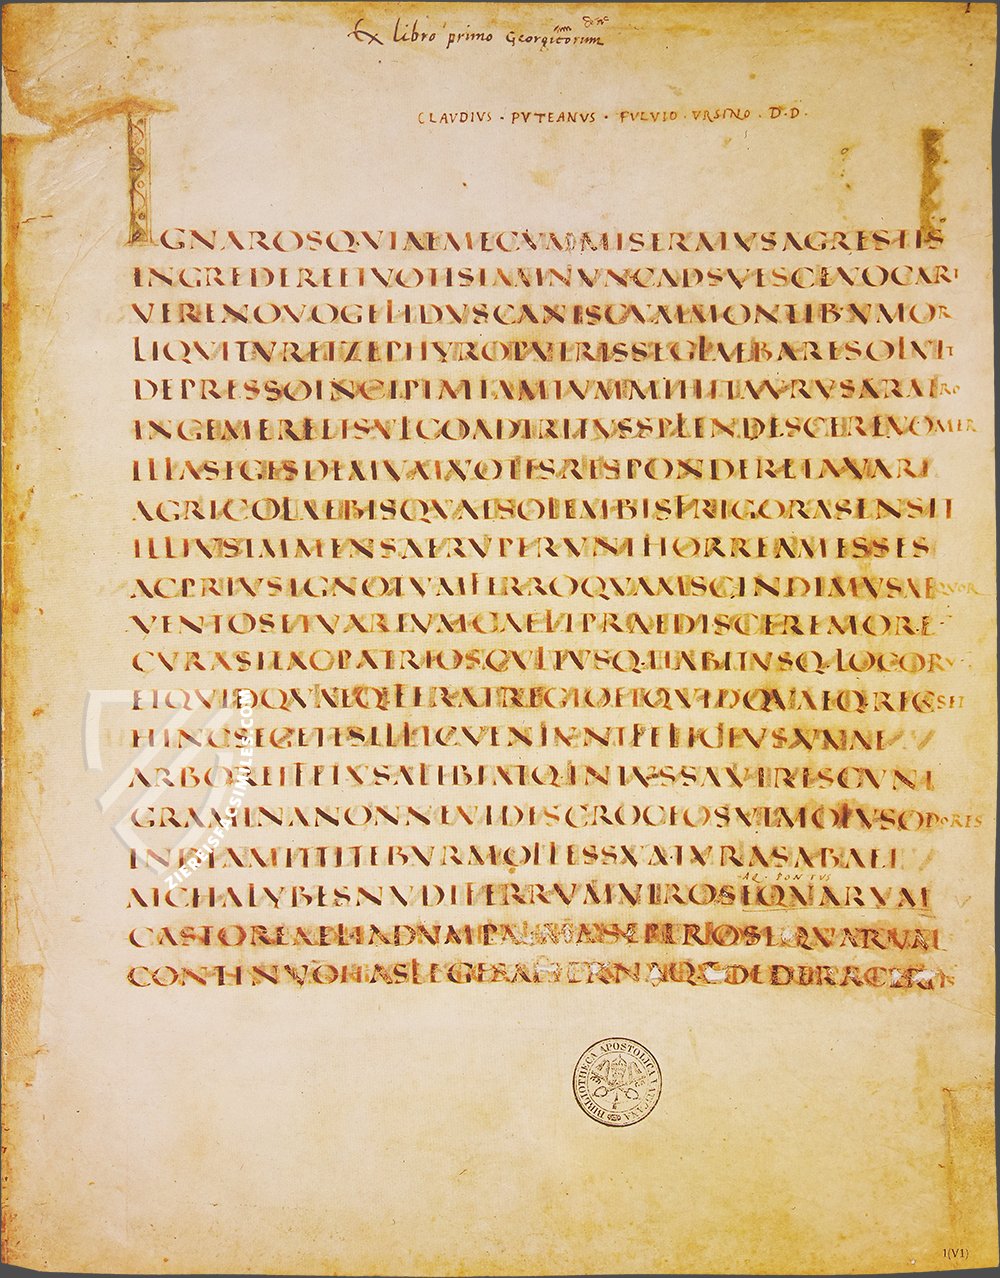 Ex libro primo Georgicorum
CLAVDIVS · PVTEANVS · FVLVIO · VRSINO · D · D ·
IGNAROSQ·VIAEMECVMMISERATVSAGRESTIS
INGREDEREETVOTISIAMNVNCADSVESCEVOCARI
VERENOVOGELIDVSCANISCVMMONTIBVMOR
LIQVITVRETZEPHYROPVTRISSEGLAEBARESOLVIT
DEPRESSOINCIPIATIAMTVMMIHITAVRVSARATRO
INGEMEREETSVLCOADTRITVSSPLENDESCEREVOMER
ILLASEGESDEMVMVOTISRESPONDETAVARI
AGRICOLAEBISQVAESOLEMBISFRIGORASENSIT
ILLIVSIMMENSAERVPERVNTHORREAMESSES
ACPRIVSIGNOTVMFERROQVAMSCINDIMVSAEQVOR
VENTOSETVARIVMCAELIPRAEDISCEREMORE
CVRASITACPATRIOSQ·CVLTVSQ·HABITVSQ·LOCORV
ETQVIDQVAEQ·FERATREGIOETQVIDQVAEQ·RECVSET
HINCSEGETESILLICVENIVNTFELICIVSVVAE
ARBOREIFETVSALIBIATQ·INIVSSAVIRESCVNT
GRAMINANONNEVIDESCROCEOSVTMOLVSODORES
INDIAMITTITEBVRMOLLESSVATVRASABAEI
AQ · PONTVS
ATCHALYBESNVDIFERRVMVIROSEQVARVM
CASTOREAELIADVMPALMASEPIROSEQVARVM
CONTINVOHASLEGESAETERNAQ·FOEDERACERTIS
BIBLIOTHECA APOSTOLICA VATICANA
ZIEREISFACSIMILES.COM
1(V1)